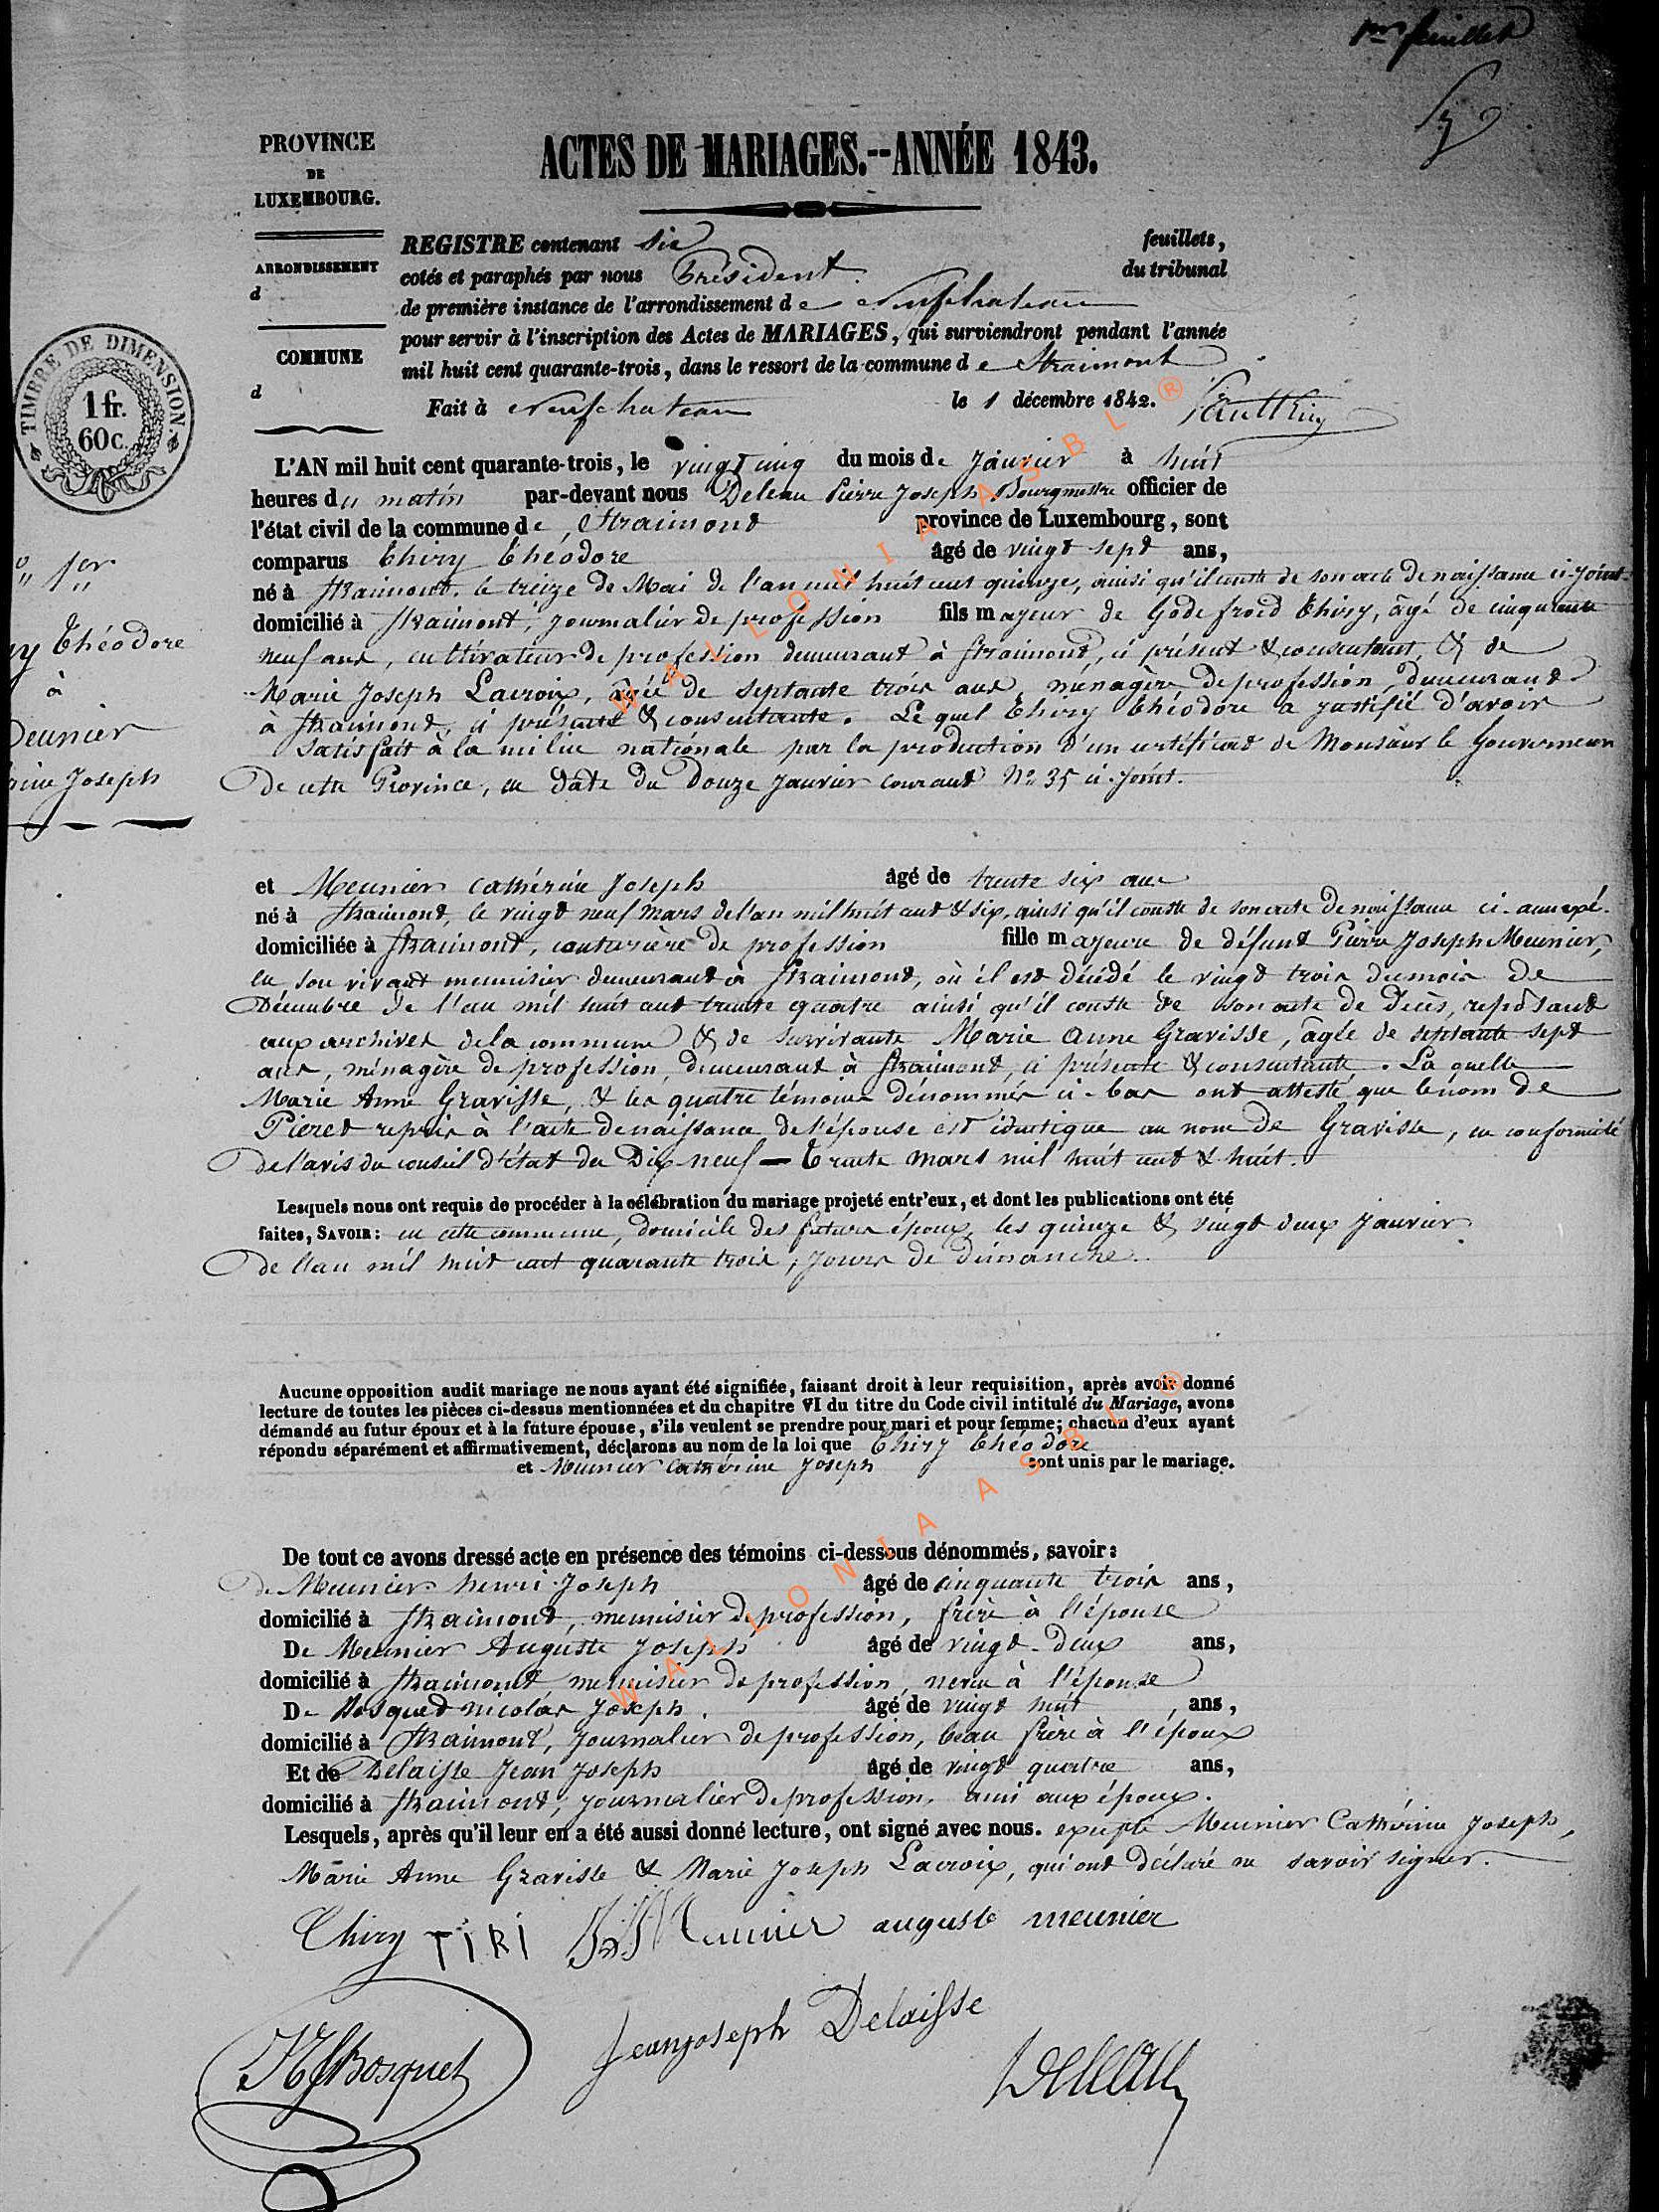 1er feuillet
PROVINCE
DE
LUXEMBOURG.
ACTES DE MARIAGES.--ANNÉE 1843.
ARRONDISSEMENT
d
COMMUNE
d
REGISTRE contenant six feuillets,
cotés et paraphés par nous Président du tribunal
de première instance de l'arrondissement de Neufchateau
pour servir à l'inscription des Actes de MARIAGES, qui surviendront pendant l'année
mil huit cent quarante-trois, dans le ressort de la commune de Straimont
Fait à Neufchateau le 1 décembre 1842.
TIMBRE DE DIMENSION.
1 fr.
60 c.
L'AN mil huit cent quarante-trois, le vingt cinq du mois de Janvier à huit
heures du matin par-devant nous Deleau Pierre Joseph Bourgmestre officier de
l'état civil de la commune de Straimont province de Luxembourg, sont
comparus Thiry Théodore âgé de vingt sept ans,
né à Straimont, le treize de Mai de l'an mil huit cent quinze, ainsi qu'il conste de son acte de naissance ci-joint.
domicilié à Straimont, journalier de profession fils majeur de Godefroid Thiry, âgé de cinquante
neuf ans, cultivateur de profession demeurant à Straimont, ci présent & consentant, & de
Marie Joseph Lacroix, âgée de septante trois ans, ménagère de profession, demeurant
à Straimont, ci présente & consentante. Lequel Thiry Théodore a justifié d'avoir
satisfait à la milice nationale par la production d'un certificat de Monsieur le Gouverneur
de cette Province, en date du Douze Janvier courant No 35 ci-joint.
1er
Théodore
à
Meunier
Joseph
et Meunier Cathérine Joseph âgé de trente six ans
né à Straimont, le vingt neuf Mars de l'an mil huit cent & six, ainsi qu'il conste de son acte de naissance ci-annexé.
domiciliée à Straimont, couturière de profession fille majeure de défunt Pierre Joseph Meunier,
en son vivant menuisier demeurant à Straimont, où il est décédé le vingt trois du mois de
Décembre de l'an mil huit cent trente quatre ainsi qu'il conste de son acte de Décès, reposant
aux archives de la commune & de survivante Marie Anne Gravisse, âgée de septante sept
ans, ménagère de profession, demeurant à Straimont, ci présente & consentante. La quelle
Marie Anne Gravisse, & les quatre témoins dénommés ci-bas ont attesté que le nom de
Pieret repris à l'acte de naissance de l'épouse est identique au nom de Gravisse, en conformité
de l'avis du conseil d'état du Dix neuf - Trente Mars mil huit cent & huit.
Lesquels nous ont requis de procéder à la célébration du mariage projeté entr'eux, et dont les publications ont été
faites, SAVOIR: en cette commune, domicile des futurs époux, les quinze & vingt deux Janvier
de l'an mil huit cent quarante trois, jours de dimanche.
Aucune opposition audit mariage ne nous ayant été signifiée, faisant droit à leur requisition, après avoir donné
lecture de toutes les pièces ci-dessus mentionnées et du chapitre VI du titre du Code civil intitulé du Mariage, avons
démandé au futur époux et à la future épouse, s'ils veulent se prendre pour mari et pour femme; chacun d'eux ayant
répondu séparément et affirmativement, déclarons au nom de la loi que Thiry Théodore
et Meunier Cathérine Joseph sont unis par le mariage.
De tout ce avons dressé acte en présence des témoins ci-dessous dénommés, savoir:
De Meunier henri Joseph âgé de cinquante trois ans,
domicilié à Straimont, menuisier de profession, frère à l'épouse
De Meunier Auguste Joseph âgé de vingt-deux ans,
domicilié à Straimont menuisier de profession, neveu à l'épouse
De Bosquet nicolas Joseph. âgé de vingt huit ans,
domicilié à Straimont, journalier de profession, beau frère à l'époux
Et de Delaisse Jean Joseph âgé de vingt quatre ans,
domicilié à Straimont, journalier de profession, ami aux époux.
Lesquels, après qu'il leur en a été aussi donné lecture, ont signé avec nous. excepté Meunier Cathérine Joseph,
Marie Anne Gravisse & Marie Joseph Lacroix, qui ont déclaré ne savoir signer.
Thiry TIRI Meunier auguste meunier
NJBosquet Jeanjoseph Delaisse
Deleau
WALLONIA ASBL ®
WALLONIA ASBL ®